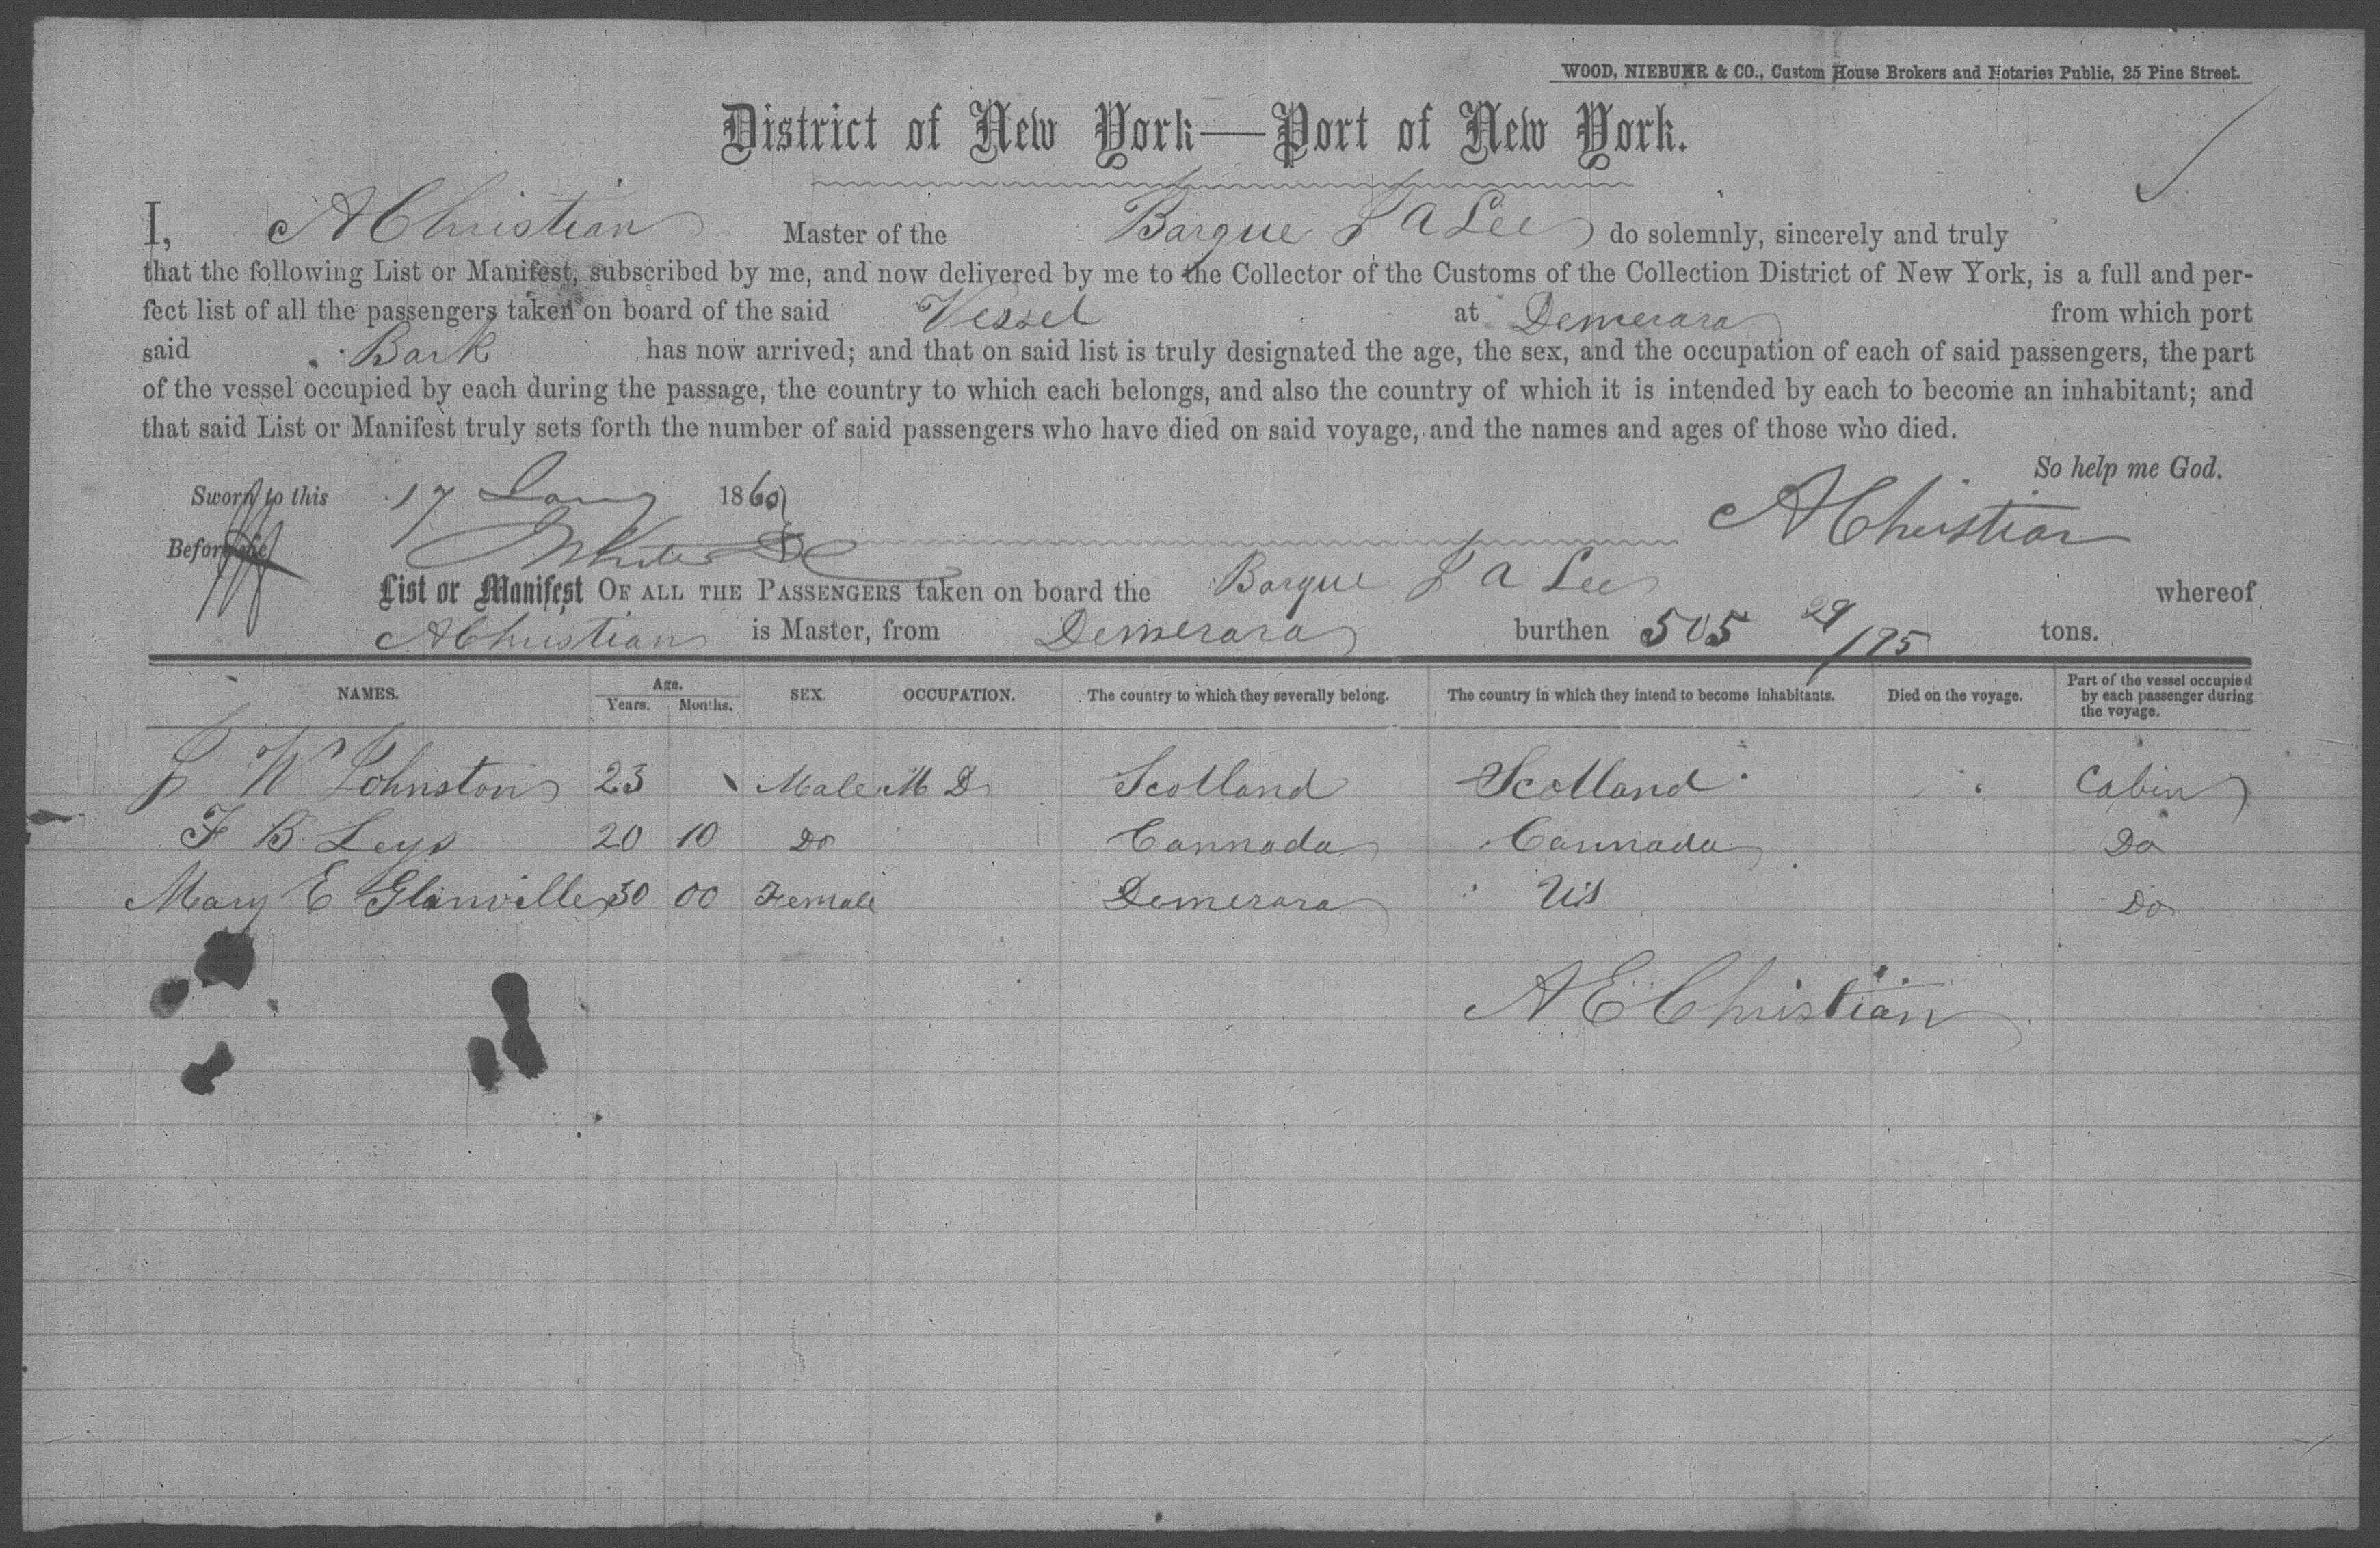 WOOD, NIEBUHR & CO., Custom House Brokers and Notaries Public, 25 Pine Street.
District of New York—Port of New York.
I, A Christian Master of the Barque J A Lee do solemnly, sincerely and truly
that the following List or Manifest, subscribed by me, and now delivered by me to the Collector of the Customs of the Collection District of New York, is a full and per-
fect list of all the passengers taken on board of the said Vessel at Demerara from which port
said Bark has now arrived; and that on said list is truly designated the age, the sex, and the occupation of each of said passengers, the part
of the vessel occupied by each during the passage, the country to which each belongs, and also the country of which it is intended by each to become an inhabitant; and
that said List or Manifest truly sets forth the number of said passengers who have died on said voyage, and the names and ages of those who died.
So help me God.
Sworn to this 17 Jany 1860
Before me A Christian
List or Manifest OF ALL THE PASSENGERS taken on board the Barque J A Lee whereof
A Christian is Master, from Demerara burthen 505 29/95 tons.
NAMES. Age. Years. Months. SEX. OCCUPATION. The country to which they severally belong. The country in which they intend to become inhabitants. Died on the voyage. Part of the vessel occupied by each passenger during the voyage.
J W Johnston 23 Male M D Scotland Scotland Cabin
F B Leys 20 10 Do Cannada Cannada Do
Mary E Glanville 30 00 Female Demerara US Do
A E Christian